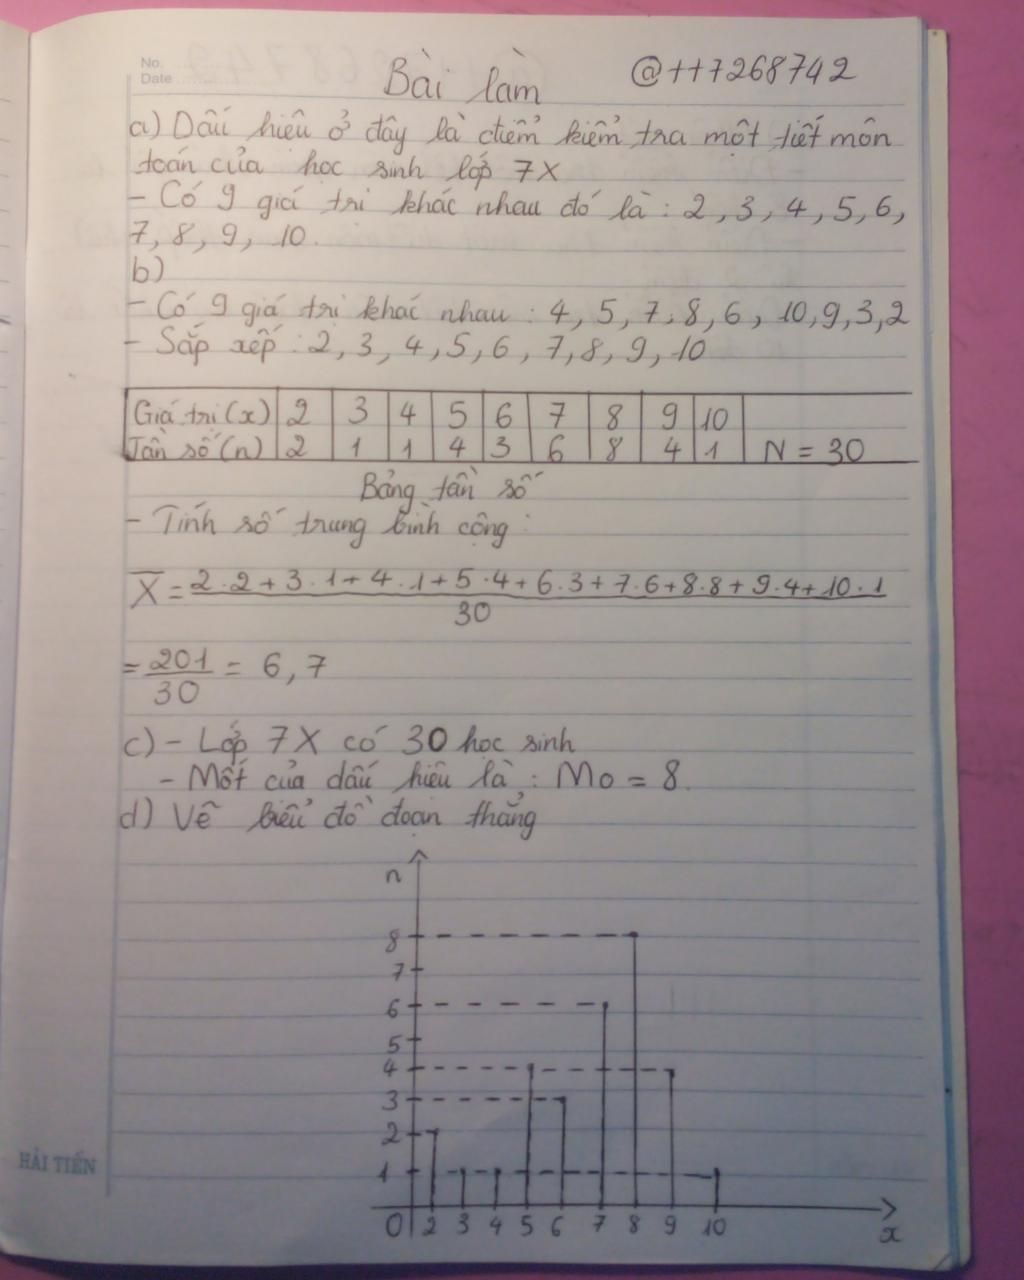 No.
Date
Bài làm
@++7268742
a) Dấu hiệu ở đây là điểm kiểm tra một tiết môn
toán của học sinh lớp 7X
- Có 9 giá trị khác nhau đó là : 2, 3, 4, 5, 6,
7, 8, 9, 10.
b)
- Có 9 giá trị khác nhau : 4, 5, 7, 8, 6, 10, 9, 3, 2
- Sắp xếp : 2, 3, 4, 5, 6, 7, 8, 9, 10
Giá trị (x) 2 3 4 5 6 7 8 9 10
Tần số (n) 2 1 1 4 3 6 8 4 1 N = 30
Bảng tần số
- Tính số trung bình cộng :
X̄ = 2.2 + 3.1 + 4.1 + 5.4 + 6.3 + 7.6 + 8.8 + 9.4 + 10.1
30
= 201/30 = 6,7
c) - Lớp 7X có 30 học sinh
- Mốt của dấu hiệu là : Mo = 8.
d) Vẽ biểu đồ đoạn thẳng
n
8
7
6
5
4
3
2
1
0 2 3 4 5 6 7 8 9 10 x
HẢI TIẾN